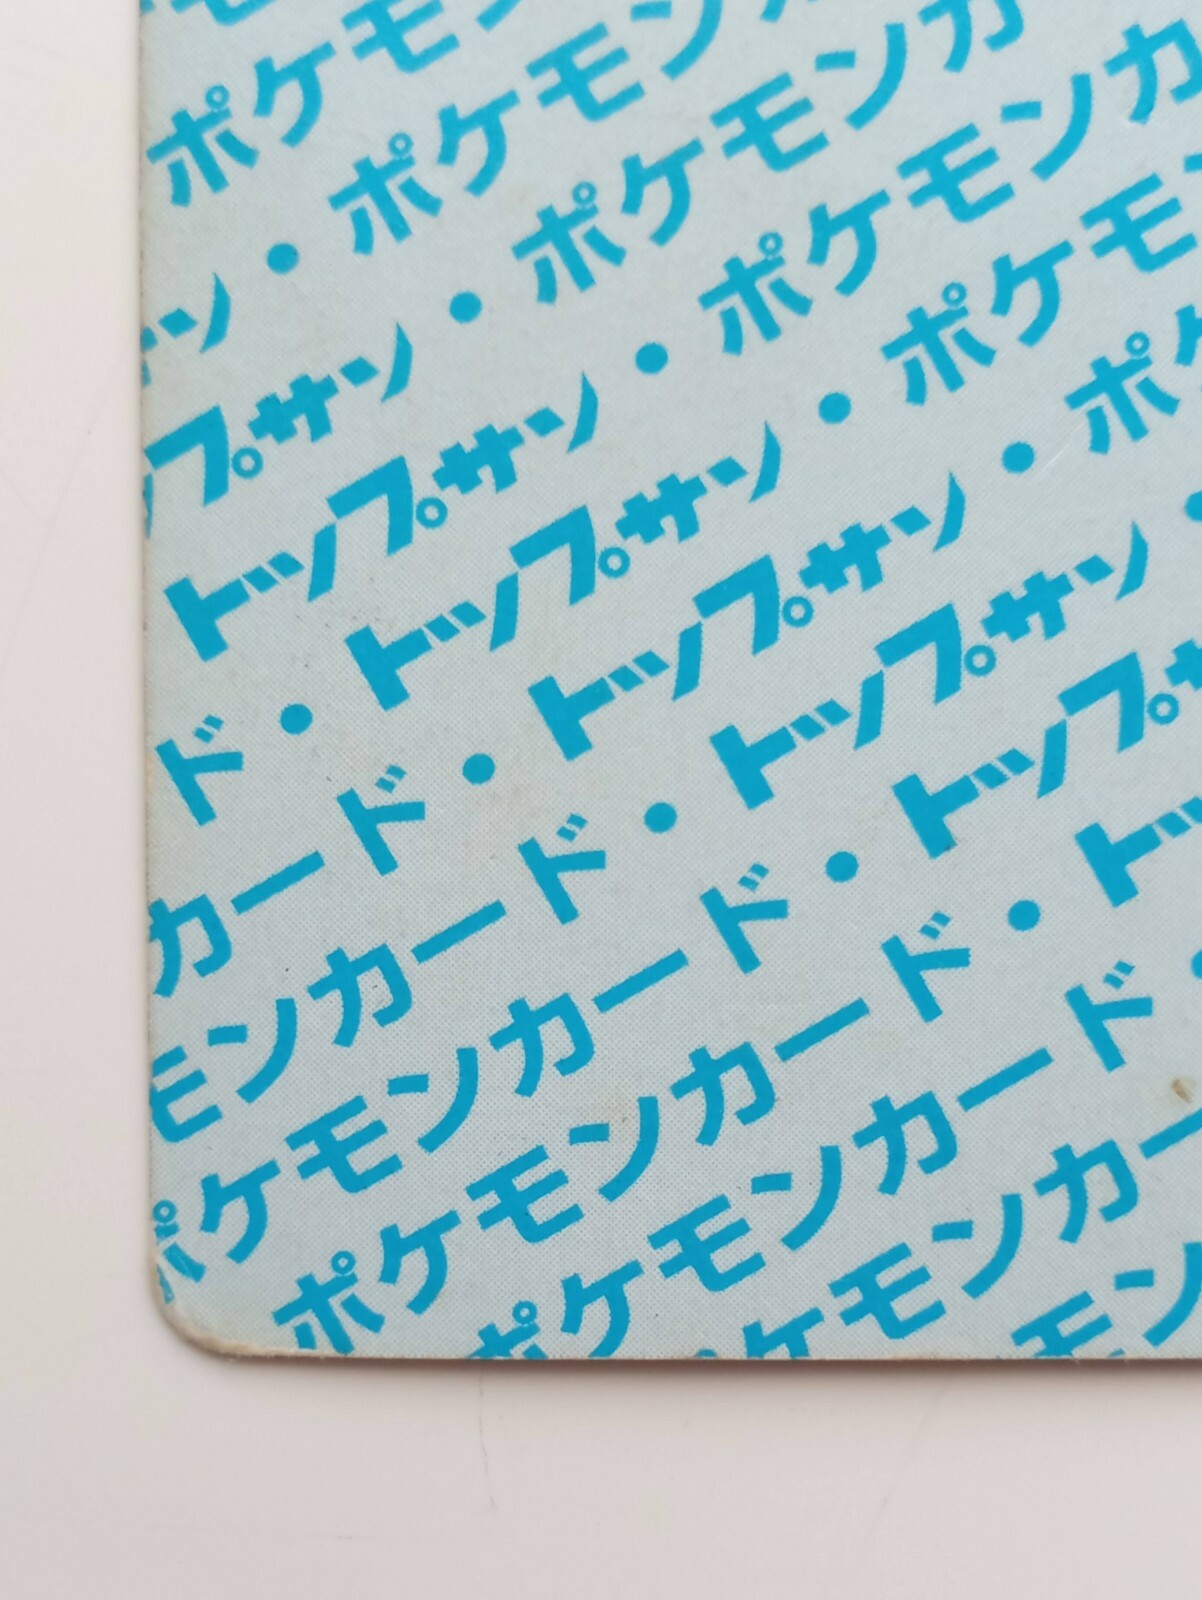 ポケモン
ン・ポケモン
プサン・ポケモンカ
トップサン・ポケモンカ
ド・トップサン・ポケモ
カード・トップサン・ポケ
モンカード・トップサン・
ポケモンカード・トップサ
ポケモンカード・トッ
ポケモンカード・
ケモンカー
モン